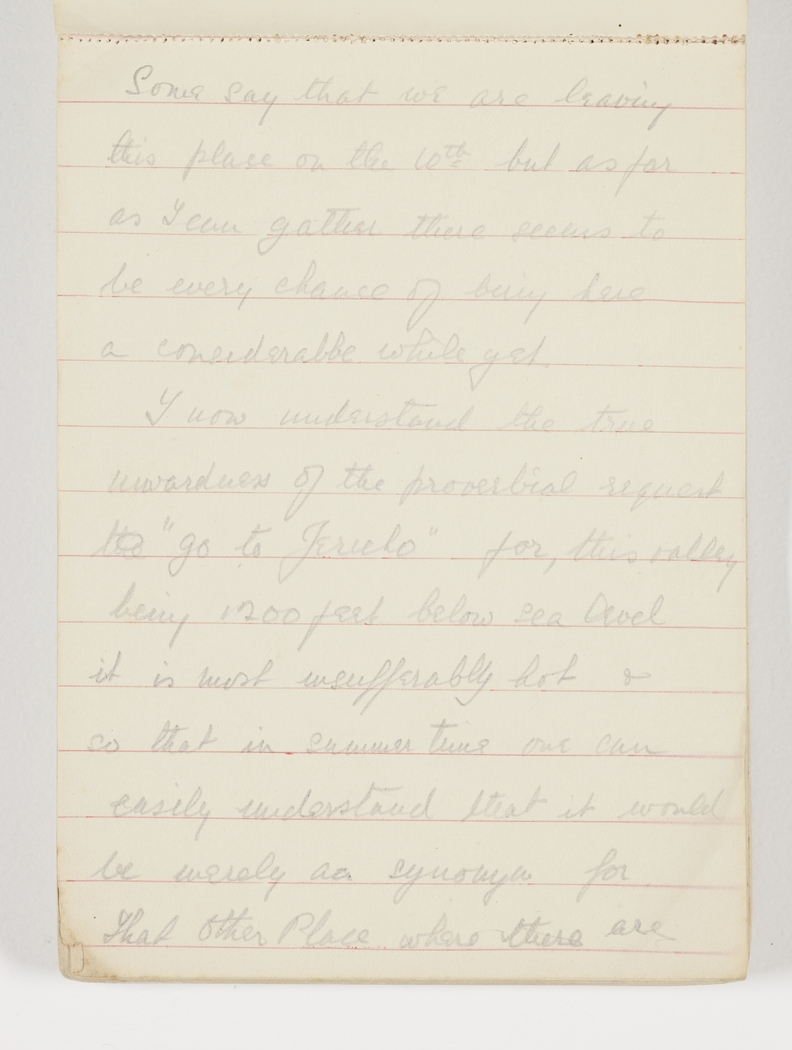 Some say that we are leaving
this place on the 10th but as far
as I can gather there seems to
be every chance of being here
a considerabbe while yet.
I now understand the true
inwardness of the proverbial request
to "go to Jericho" for, this valley
being 1200 feet below sea level
it is most insufferably hot &
so that in summer time one can
easily understand that it would
be merely a synonym for
That Other Place where there are